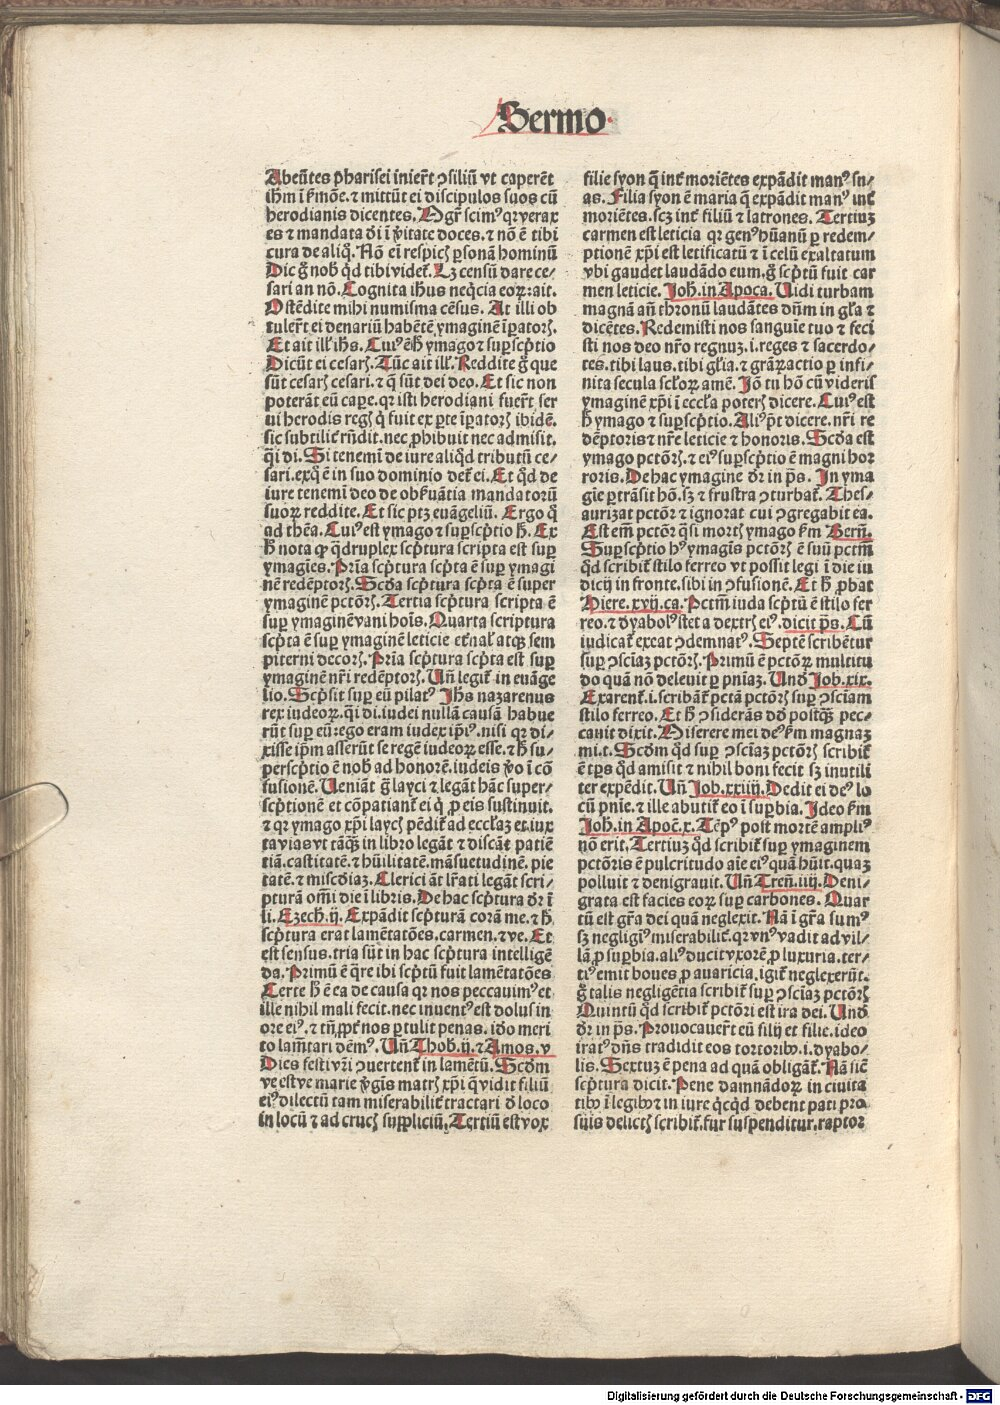 Sermo
Abeūtes pharisei inierūt ꝯsiliū vt caperēt
ihm̄ ī ẜmōe. ⁊ mittūt ei discipulos suos cū
herodianis dicentes. Mgr̄ scimꝰ qꝛ verax
es ⁊ mandata dei ī v̓itate doces. ⁊ nō ē tibi
cura de aliq̊. Nō em̄ respicis ꝑsonā hominū
Dic g̊ nob̓ qd̓ tibi videt᷑. Lꝫ censū dare ce⸗
sari an nō. Cognita ihus neq̄cia eoꝝ: ait.
Ostēdite mihi numisma cēsus. At illi ob
tuler̄t ei denariū habētē ymaginē īꝑatoris.
Et ait ill̓ ihs. Cuiꝰ ē hec ymago ⁊ suꝑscp̄tio
Dicūt ei cesaris. Tūc ait ill̓. Reddite g̊ que
sūt cesaris cesari. ⁊ q̄ sūt dei deo. Et sic non
poterāt eū caꝑe. qꝛ isti herodiani fuer̄t ser
ui herodis regis q̇ fuit ex ꝑte īꝑatoris ibidē.
sic subtilit̓ rn̄dit. nec ꝓhibuit nec admisit.
q̄si di. Si tenemī de iure aliqd̓ tributū ce⸗
sari. exq̊ ē in suo dominio det᷑ ei. Et qd̓ de
iure tenemī deo de obẜuātia mandatorū
suoꝝ reddite. Et sic ptꝫ euāgeliū. Ergo q̊
ad thēa. Cuiꝰ est ymago ⁊ suꝑscp̄tio h̓. Ex
h̓ nota ꝙ q̈druplex scp̄tura scripta est suꝑ
ymagīes. Prīa scp̄tura scp̄ta ē suꝑ ymagi
nē redēptoris. Scd̓a scp̄tura scp̄ta ē super
ymaginē pctōris. Tertia scp̄tura scripta ē
suꝑ ymaginē vani hoīs. Quarta scriptura
scp̄ta ē suꝑ ymaginē leticie et̓nal̓ atqꝫ sem
piterni decoris. Prīa scp̄tura scp̄ta est suꝑ
ymaginē nr̄i redēptoris. Un̄ legit᷑ in euāge
lio. Scp̄sit suꝑ eū pilatꝰ Jhs nazarenus
rex iudeoꝝ. q̄si di. iudei nullā causā habue
rūt suꝑ eū: ego eram iudex ip̄iꝰ. nisi qꝛ di⸗
xisse ip̄m asserūt se regē iudeoꝝ esse. ⁊ h̓ su⸗
perscp̄tio ē nob̓ ad honorē. iudeis v̓o ī cō
fusionē. Ueniāt g̊ layci ⁊ legāt hāc super⸗
scp̄tionē et cōpatiant᷑ ei q̇ ꝓ eis sustinuit.
⁊ qꝛ ymago xp̄i laycis pēdit᷑ ad eccl̓iaꝫ et iux
ta vias vt tāqꝫ in libro legāt ⁊ discāt patiē
tiā. castitatē. ⁊ hūilitatē. māsuetudinē. pie
tatē. ⁊ misc̄diaꝫ. Clerici āt lr̄ati legāt scri⸗
pturā om̄i die ī libris. De hac scp̄tura dr̄ ī
li. Ezech. ij. Expādit scp̄turā corā me. ⁊ h̓
scp̄tura erat lamētatōes. carmen. ⁊ ve. Et
est sensus. tria sūt in hac scp̄tura intelligē
da. Primū ē q̄re ibi scp̄tū fuit lamētatōes
Certe h̓ ē ea de causa qꝛ nos peccauimꝰ et
ille nihil mali fecit. nec inuentꝰ est dolus in
ore eiꝰ. ⁊ tn̄ ꝓpt̓ nos ꝑtulit penas. id̓o meri
to lam̄tari dēmꝰ. Un̄ Thob. ij. ⁊ Amos. v
Dies festi vr̄i ꝯuertent᷑ in lamētū. Scd̓m
ve est ve marie v̓gīs matris xp̄i q̄ vidit filiū
eiꝰ dilectū tam miserabilit̓ tractari d̓ loco
in locū ⁊ ad crucis suppliciū. Tertiū est vox
filie syon q̄ int̓ moriētes expādit manꝰ su⸗
as. Filia syon ē maria q̄ expādit manꝰ int̓
moriētes. scꝫ int̓ filiū ⁊ latrones. Tertiuꝫ
carmen est leticia qꝛ genꝰ hūanū ꝑ redem⸗
ptionē xp̄i est letificatū ⁊ ī celū exaltatum
vbi gaudet laudādo eum. g̊ scp̄tū fuit car
men leticie. Joh̓. in Apoca. Uidi turbam
magnā an̄ thronū laudātes dn̄m in gl̓ia ⁊
dicētes. Redemisti nos sanguīe tuo ⁊ feci
sti nos deo nr̄o regnuꝫ. i. reges ⁊ sacerdo⸗
tes. tibi laus. tibi gl̓ia. ⁊ gr̄aꝝ actio ꝑ infi⸗
nita secula scl̓oꝝ amē. Jō tu hō cū videris
ymaginē xp̄i ī eccl̓ia poteris dicere. Cuiꝰ est
h̓ ymago ⁊ suꝑscp̄tio. Aliꝰ pt̄ dicere. nr̄i re
dēptoris ⁊ nr̄e leticie ⁊ honoris. Scd̓a est
ymago pctōris. ⁊ eiꝰ suꝑscp̄tio ē magni hor
roris. De hac ymagine dr̄ in p̄s. In yma
gīe ꝑtrāsit hō. sꝫ ⁊ frustra ꝯturbat᷑. Thes⸗
aurizat pctōr ⁊ ignorat cui ꝯgregabit ea.
Est em̄ pctōr q̄si mortis ymago ẜm Bern̄.
Suꝑscp̄tio hꝰ ymagīs pctōris ē suū pctm̄
qd̓ scribit᷑ stilo ferreo vt possit legi ī die iu
dicij in fronte. sibi in ꝯfusionē. Et h̓ ꝓbat
Hiere. xvij. ca. Pctm̄ iuda scp̄tū ē stilo fer
reo. ⁊ dyabolꝰ stet a dextris eiꝰ. dicit p̄s. Cū
iudicat᷑ exeat ꝯdemnatꝰ. Septē scribētur
suꝑ ꝯsciaꝫ pctōris. Primū ē pctōꝝ multitu
do quā nō deleuit ꝑ pn̄iaꝫ. Und̓ Job. xix.
Exarent᷑. i. scribāt᷑ pctā pctōris suꝑ ꝯsciam
stilo ferreo. Et h̓ ꝯsiderās dd̓ postqꝫ pec⸗
cauit dixit. Miserere mei deꝰ ẜm magnaꝫ
mi. t. Scd̓m qd̓ suꝑ ꝯsciaꝫ pctōris scribit᷑
ē tp̄s qd̓ amisit ⁊ nihil boni fecit sꝫ inutili
ter expēdit. Un̄ Job. xxiiij. Dedit ei deꝰ lo
cū pn̄ie. ⁊ ille abutit᷑ eo ī suꝑbia. Ideo ẜm
Joh̓. in Apoc̄. x. Tēpꝰ post mortē ampliꝰ
nō erit. Tertiuꝫ qd̓ scribit᷑ suꝑ ymaginem
pctōris ē pulcritudo aīe eiꝰ quā hūit. quaꝫ
polluit ⁊ denigrauit. Un̄ Tren̄. iiij. Deni⸗
grata est facies eoꝝ suꝑ carbones. Quar
tū est gr̄a dei quā neglexit. Nā ī gr̄a sumꝰ
sꝫ negligiꝰ miserabilit̓. qꝛ vnꝰ vadit ad vil⸗
lā ꝓ suꝑbia. aliꝰ ducit vxorē ꝓ luxuria. ter⸗
tiꝰ emit boues ꝓ auaricia. igit᷑ neglexerūt.
g̊ talis negligētia scribit᷑ suꝑ ꝯsciaꝫ pctōris
Quintū qd̓ scribit᷑ pctōri est ira dei. Und̓
dr̄ in p̄s. Prouocauer̄t eū filij et filie. ideo
iratꝰ dn̄s tradidit eos tortoribꝰ. i. dyabo⸗
lis. Sextuꝫ ē pena ad quā obligat᷑. Nā sic̄
scp̄tura dicit. Pene damnādoꝝ in ciuita
tibꝰ ī legibꝰ ⁊ in iure q̇cqd̓ debent pati pro
suis delictis scribit᷑. fur suspenditur. raptor
Digitalisierung gefördert durch die Deutsche Forschungsgemeinschaft - DFG